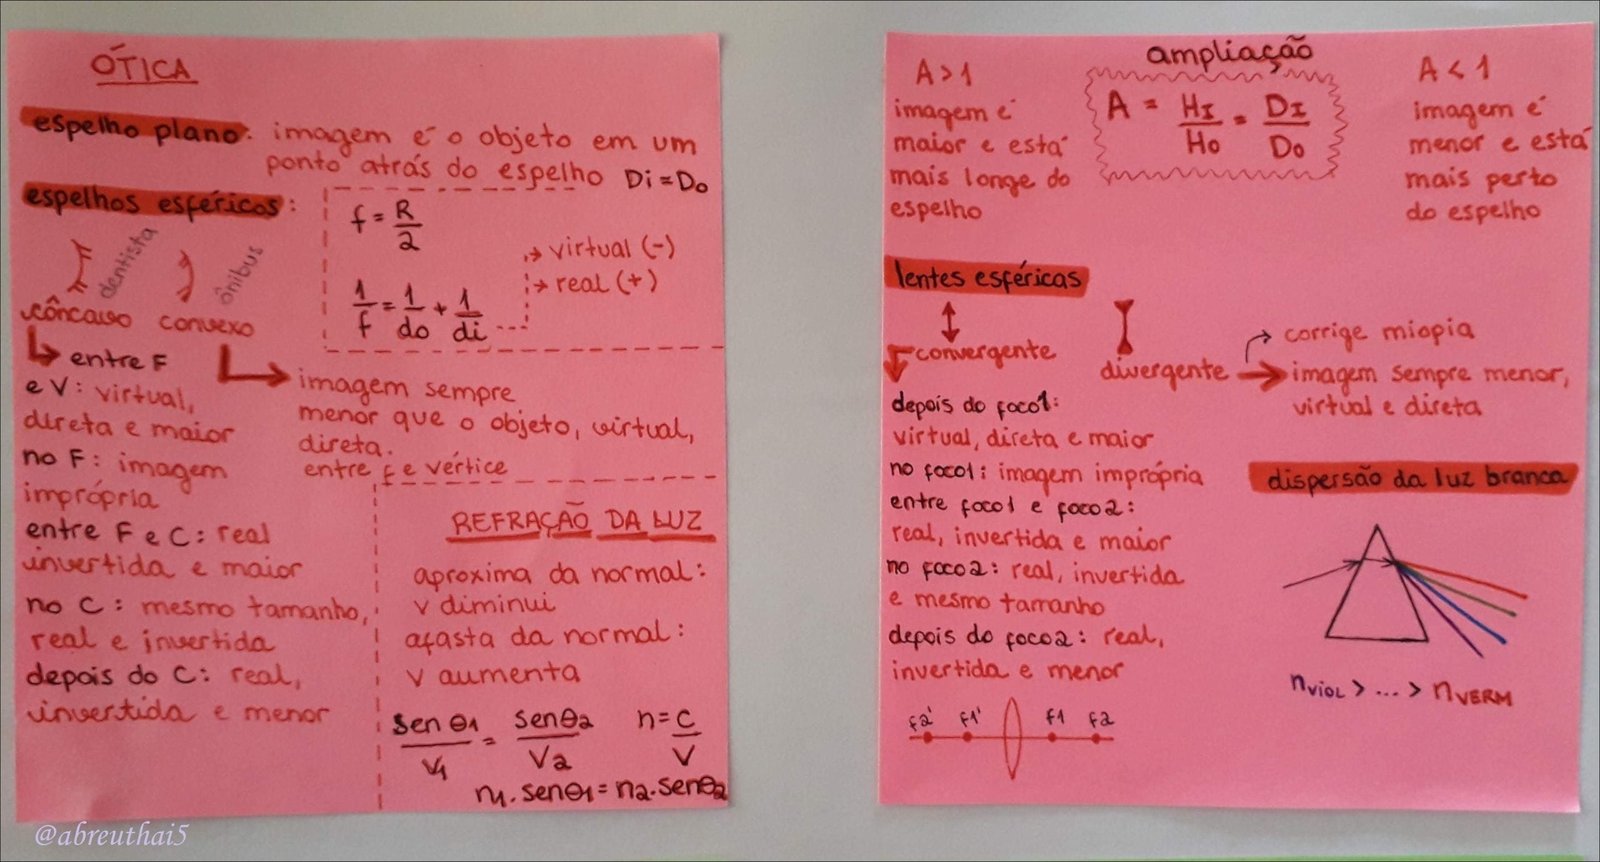 ÓTICA
espelho plano: imagem é o objeto em um
ponto atrás do espelho Di = Do
espelhos esféricos:
dentista
ônibus
côncavo convexo
f = R/2
1/f = 1/do + 1/di
→ virtual (-)
→ real (+)
entre F
e V: virtual,
direta e maior
no F: imagem
imprópria
entre F e C: real
invertida e maior
no C: mesmo tamanho,
real e invertida
depois do C: real,
invertida e menor
imagem sempre
menor que o objeto, virtual,
direta.
entre f e vértice
REFRAÇÃO DA LUZ
aproxima da normal:
v diminui
afasta da normal:
v aumenta
sen θ1/V1 = sen θ2/V2 n = c/V
n1.senθ1 = n2.senθ2
@abreuthai5
ampliação
A = HI/Ho = DI/Do
A > 1
imagem é
maior e está
mais longe do
espelho
A < 1
imagem é
menor e está
mais perto
do espelho
lentes esféricas
convergente
divergente
corrige miopia
imagem sempre menor,
virtual e direta
depois do foco1:
virtual, direta e maior
no foco1: imagem imprópria
entre foco1 e foco2:
real, invertida e maior
no foco2: real, invertida
e mesmo tamanho
depois do foco2: real,
invertida e menor
f2' f1' f1 f2
dispersão da luz branca
nVIOL > ... > nVERM